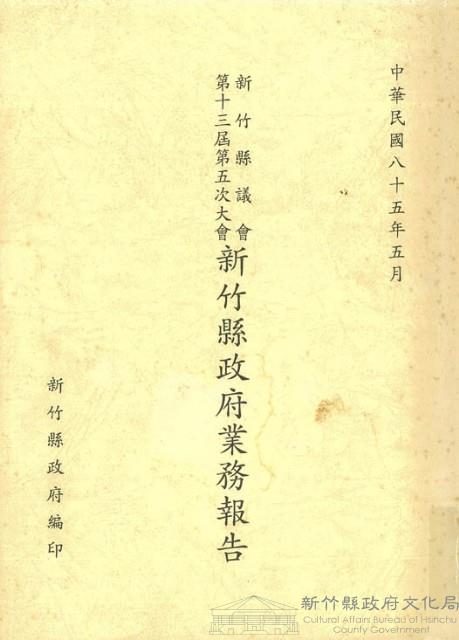 中華民國八十五年五月
新竹縣議會
第十三屆第五次大會
新竹縣政府業務報告
新竹縣政府編印
新竹縣政府文化局
Cultural Affairs Bureau of Hsinchu
County Government